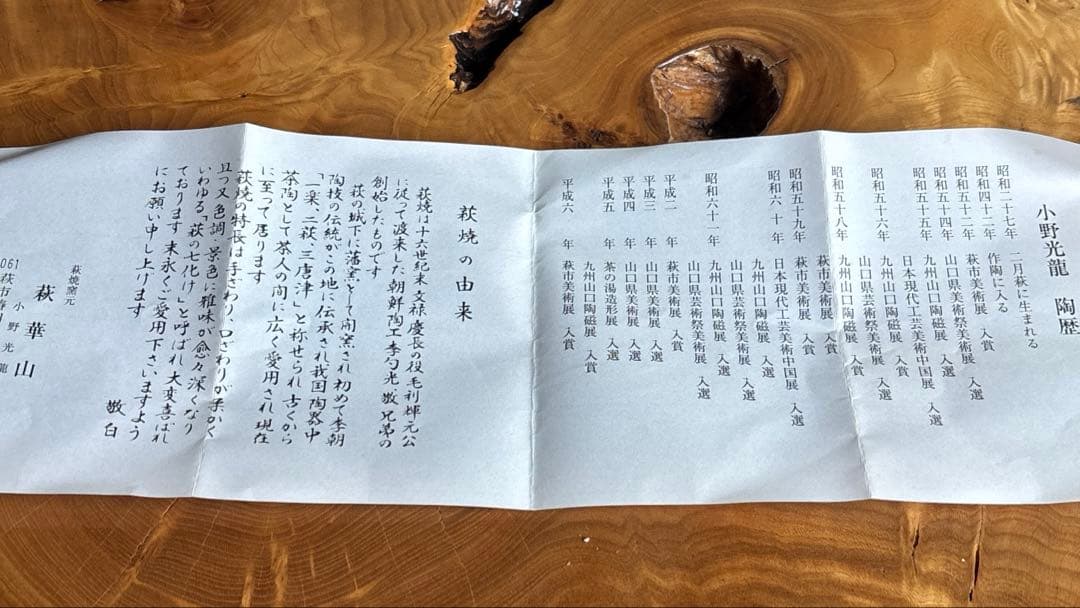 小野光龍 陶歴
昭和二十七年 二月萩に生まれる
昭和四十二年 作陶に入る
昭和五十二年 萩市美術展 入賞
山口県芸術祭美術展 入選
昭和五十四年 山口県美術展 入選
九州山口陶磁展 入選
昭和五十五年 日本現代工芸美術中国展 入選
九州山口陶磁展 入賞
昭和五十六年 山口県芸術祭美術展 入選
山口県美術展 入賞
昭和五十八年 九州山口陶磁展 入選
萩市美術展 入賞
昭和五十九年 萩市美術展 入賞
日本現代工芸美術中国展 入選
昭和六十年 九州山口陶磁展 入選
山口県芸術祭美術展 入選
九州山口陶磁展 入選
昭和六十一年 山口県芸術祭美術展 入選
萩市美術展 入賞
平成二年 山口県美術展 入選
平成三年 山口県美術展 入選
平成四年 山口県美術展 入選
平成五年 茶の湯造形展 入選
九州山口陶磁展 入賞
平成六年 萩市美術展 入賞
萩焼の由来
萩焼は十六世紀末文禄慶長の役毛利輝元公
に従って渡来した朝鮮陶工李勺光、敬兄弟の
創始したものです
萩の城下に藩窯として開窯され初めて李朝
陶技の伝統がこの地に伝承され我国陶器中
「一楽、二萩、三唐津」と称せられ古くから
茶陶として茶人の間に広く愛用され現在
に至って居ります
萩焼の特長は手ざわり、口ざわりが柔かく
且つ又色調・景色に雅味が念々深くなり
いわゆる「萩の七化け」と呼ばれ大変喜ばれ
ております 末永くご愛用下さいますよう
にお願い申し上ります
敬白
萩焼窯元
萩華山
小野光龍
061
萩市